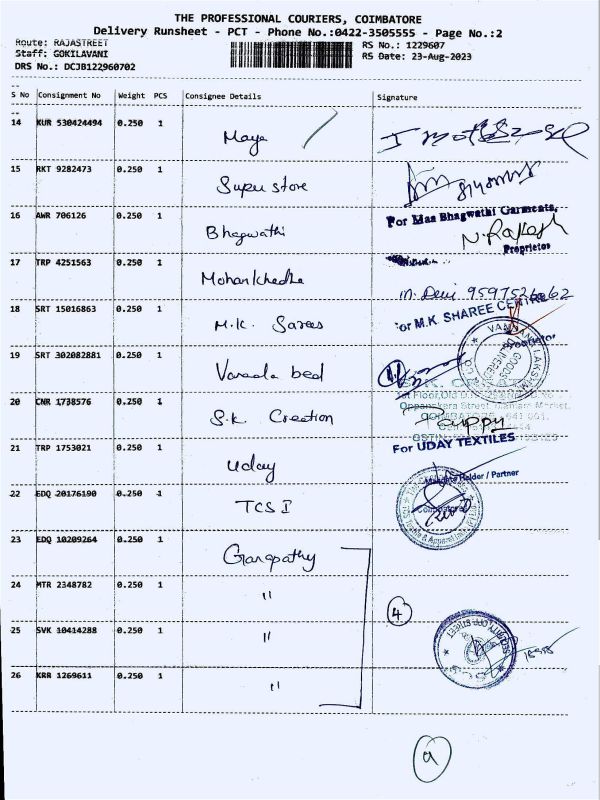 THE PROFESSIONAL COURIERS, COIMBATORE
Delivery Runsheet - PCT - Phone No.:0422-3505555 - Page No.:2
Route: RAJASTREET
RS No.: 1229607
Staff: GOKILAVANI
RS Date: 23-Aug-2023
DRS No.: DCJB122960702
--
S No Consignment No Weight PCS Consignee Details Signature
--
14 KUR 530424494 0.250 1 Maya
15 RKT 9282473 0.250 1 Super store
16 AWR 706126 0.250 1 Bhagwathi
For Maa Bhagwathi Garments,
N. Rakesh
Proprietor
17 TRP 4251563 0.250 1 Mohankhedha
m. Devi 9597526062
18 SRT 15016863 0.250 1 M.K. Sarees
For M.K SHAREE CENTRE
Proprietor
19 SRT 302082881 0.250 1 Varada bed
20 CNR 1738576 0.250 1 S.K Creation
Oppanakara Street,
Pauppy
21 TRP 1753021 0.250 1 Uday
For UDAY TEXTILES
Holder / Partner
22 EDQ 20176190 0.250 1 TCS I
23 EDQ 10209264 0.250 1 Ganapathy
24 MTR 2348782 0.250 1 "
4
25 SVK 10414288 0.250 1 "
26 KRR 1269611 0.250 1 "
9